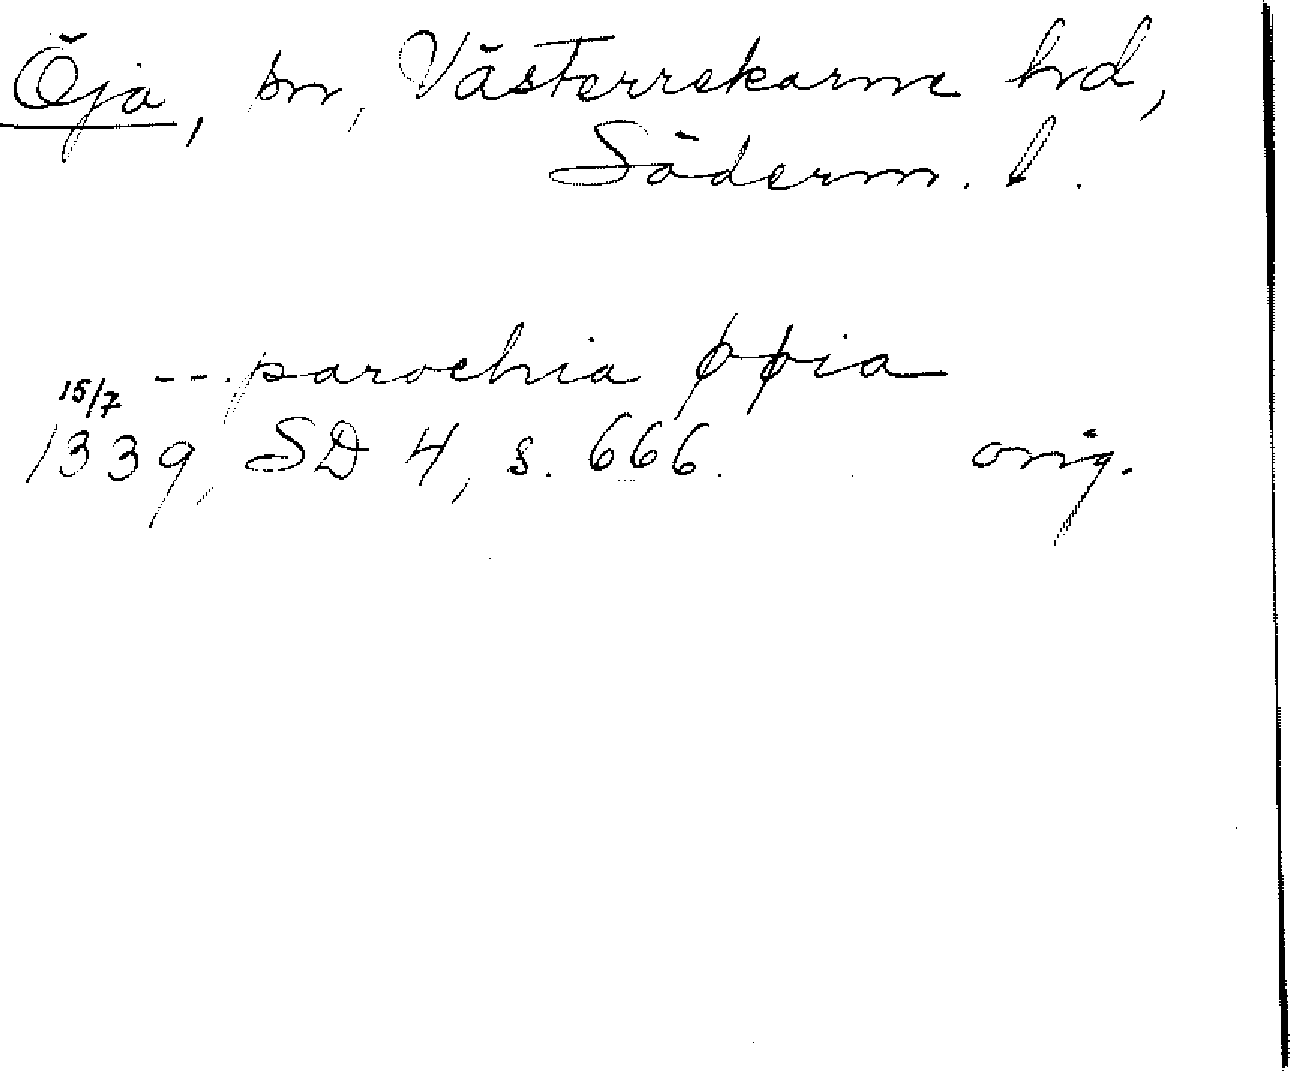 Öja, sn, Västerrekarne hd,
Söderm. l.
15/7 --. parochia øøia
1339, SD 4, s. 666. orig.